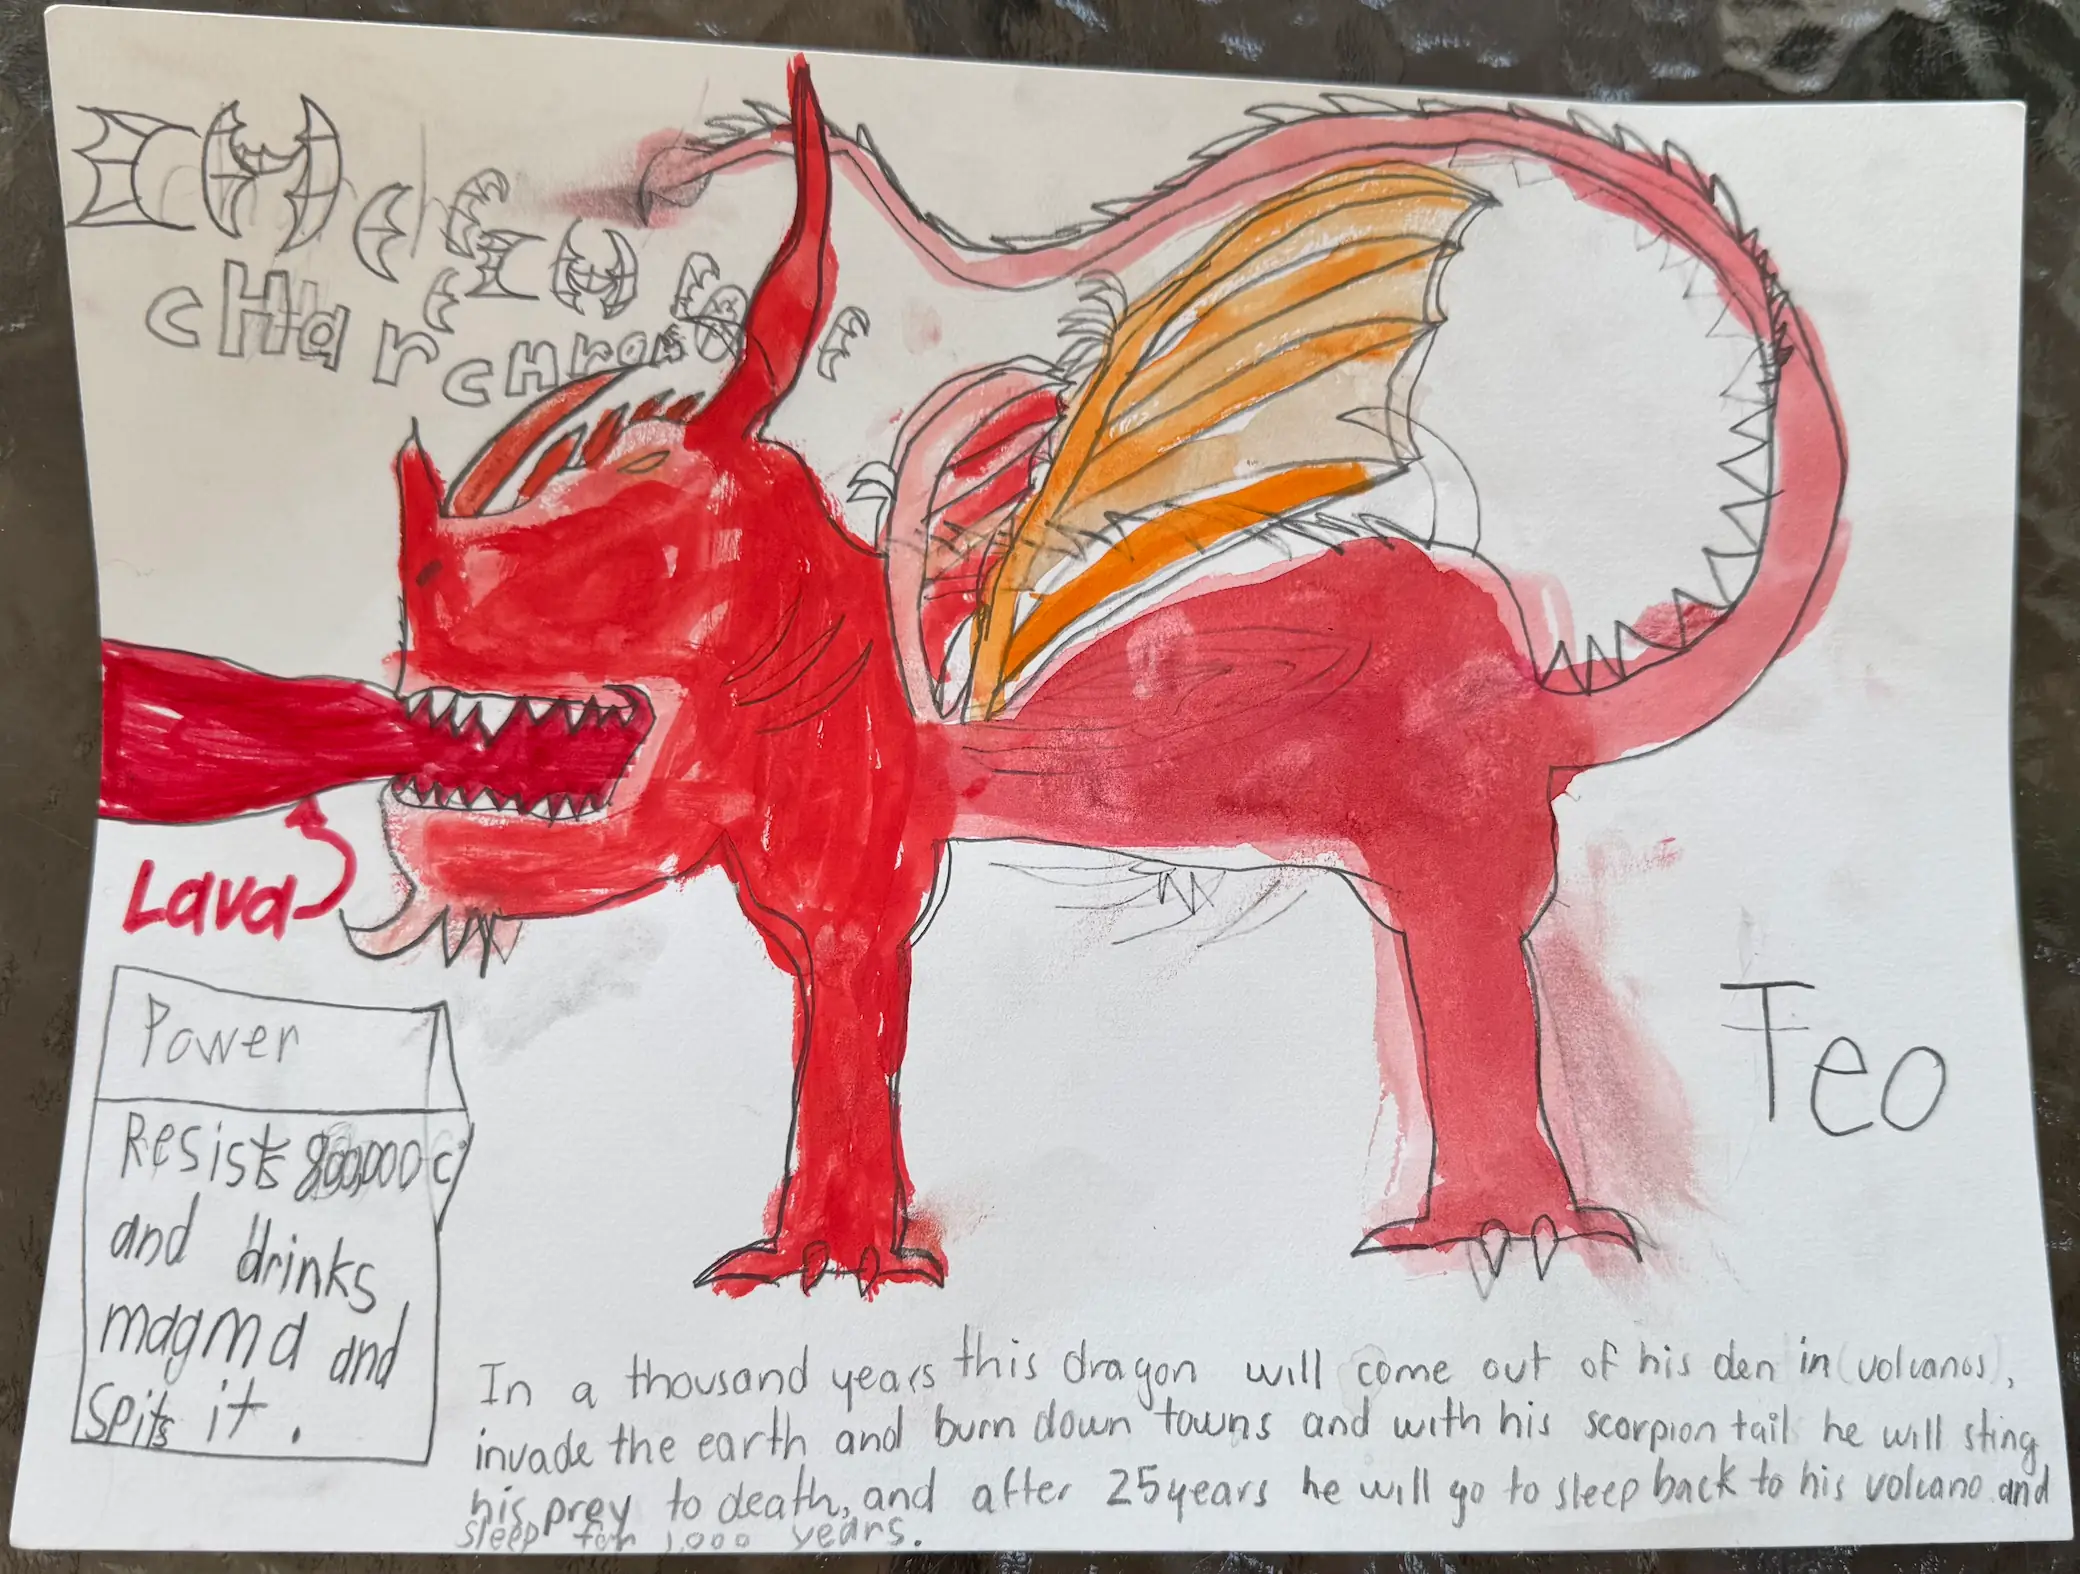 cHarcHro
Lava
Power
Resists 800,000 c
and drinks
magma and
spits it.
Teo
In a thousand years this dragon will come out of his den in (volcanos),
invade the earth and burn down towns and with his scorpion tail he will sting
his prey to death, and after 25 years he will go to sleep back to his volcano and
sleep for 1,000 years.